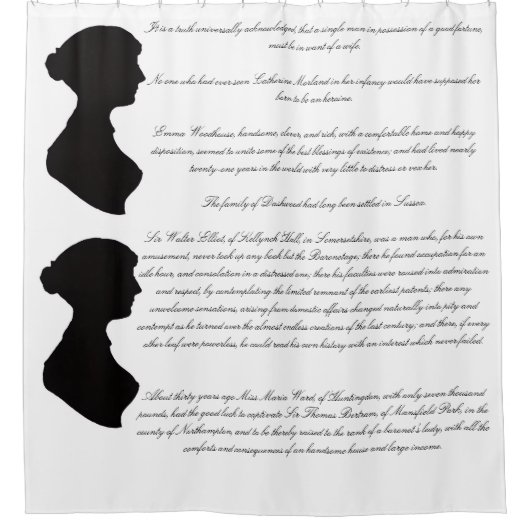 It is a truth universally acknowledged, that a single man in possession of a good fortune,
must be in want of a wife.
No one who had ever seen Catherine Morland in her infancy would have supposed her
born to be an heroine.
Emma Woodhouse, handsome, clever, and rich, with a comfortable home and happy
disposition, seemed to unite some of the best blessings of existence; and had lived nearly
twenty-one years in the world with very little to distress or vex her.
The family of Dashwood had long been settled in Sussex.
Sir Walter Elliot, of Kellynch Hall, in Somersetshire, was a man who, for his own
amusement, never took up any book but the Baronetage; there he found occupation for an
idle hour, and consolation in a distressed one; there his faculties were roused into admiration
and respect, by contemplating the limited remnant of the earliest patents; there any
unwelcome sensations, arising from domestic affairs changed naturally into pity and
contempt as he turned over the almost endless creations of the last century; and there, if every
other leaf were powerless, he could read his own history with an interest which never failed.
About thirty years ago Miss Maria Ward, of Huntingdon, with only seven thousand
pounds, had the good luck to captivate Sir Thomas Bertram, of Mansfield Park, in the
county of Northampton, and to be thereby raised to the rank of a baronet's lady, with all the
comforts and consequences of an handsome house and large income.